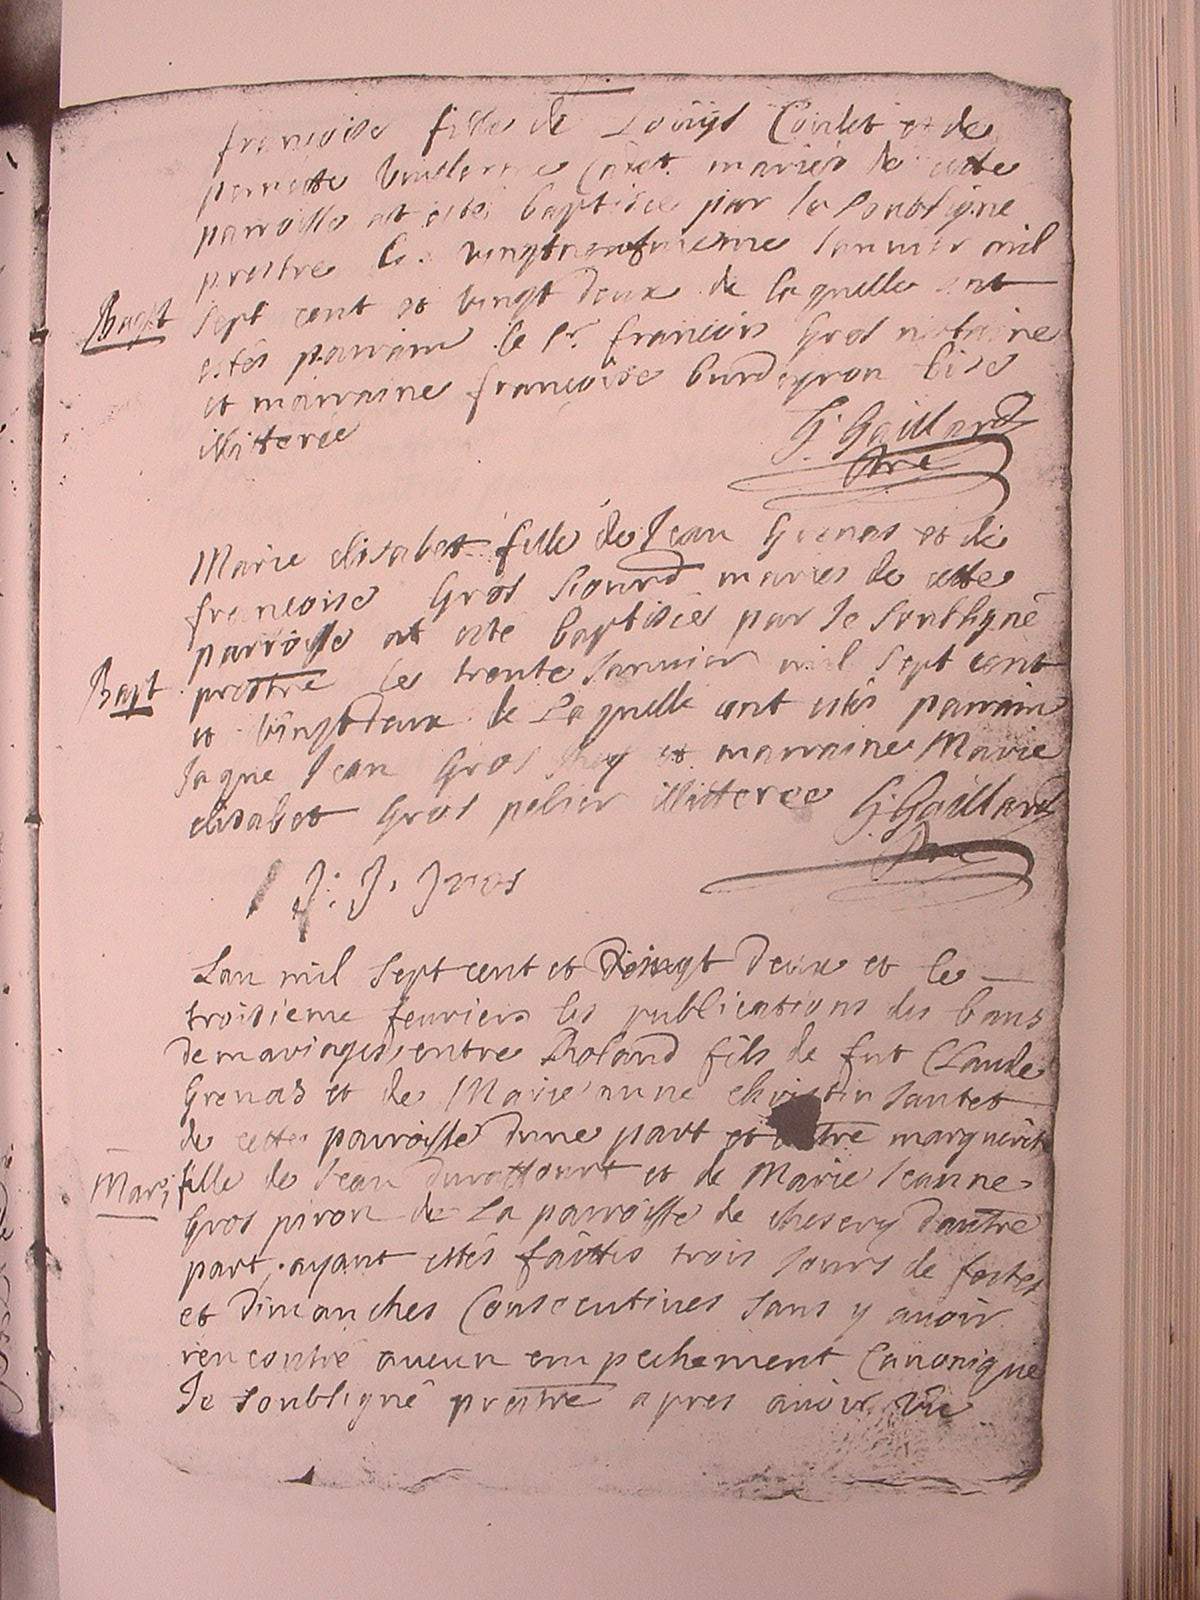 françoise fille de Loüijs Coulet et de
pernette mariés de cette
parroisse at estés baptisée par le soubsigné
prestre le vingtneufvieme Janvier mil
Bapt sept cent et vingt deux de laquelle ont
estés parrain le Sr. françois Gros notaire
et marraine françoise bise
illitterée
G. Gaillard
Pre
Marie elisabet fille de Jean Grenas et de
françoise Gros mariés de cette
parroisse at esté baptisée par Je soubsigné
Bapt prestre le trente Janvier mil sept cent
et vingt deux de Laquelle ont estés parrain
Jaque Jean Gros et marraine Marie
elisabet Gros pelier illitterée G. Gaillard
Pre
J: J. Gros
Lan mil sept cent et vingt deux et le
troisieme feurier les publications des bans
de mariages entre Roland fils de fut Claude
Grenas et de Marie anne christin Jantet
de cette parroisse dune part et entre marguerite
Mari fille de Jean duraffourt et de Marie Jeanne
Gros piron de La parroisse de chesery dautre
part, ayant estés faittes trois Jours de festes
et Dimanches Consecutives sans y avoir
rencontré aucun empechement Canonique
Je soubsigné prestre apres avoir vû